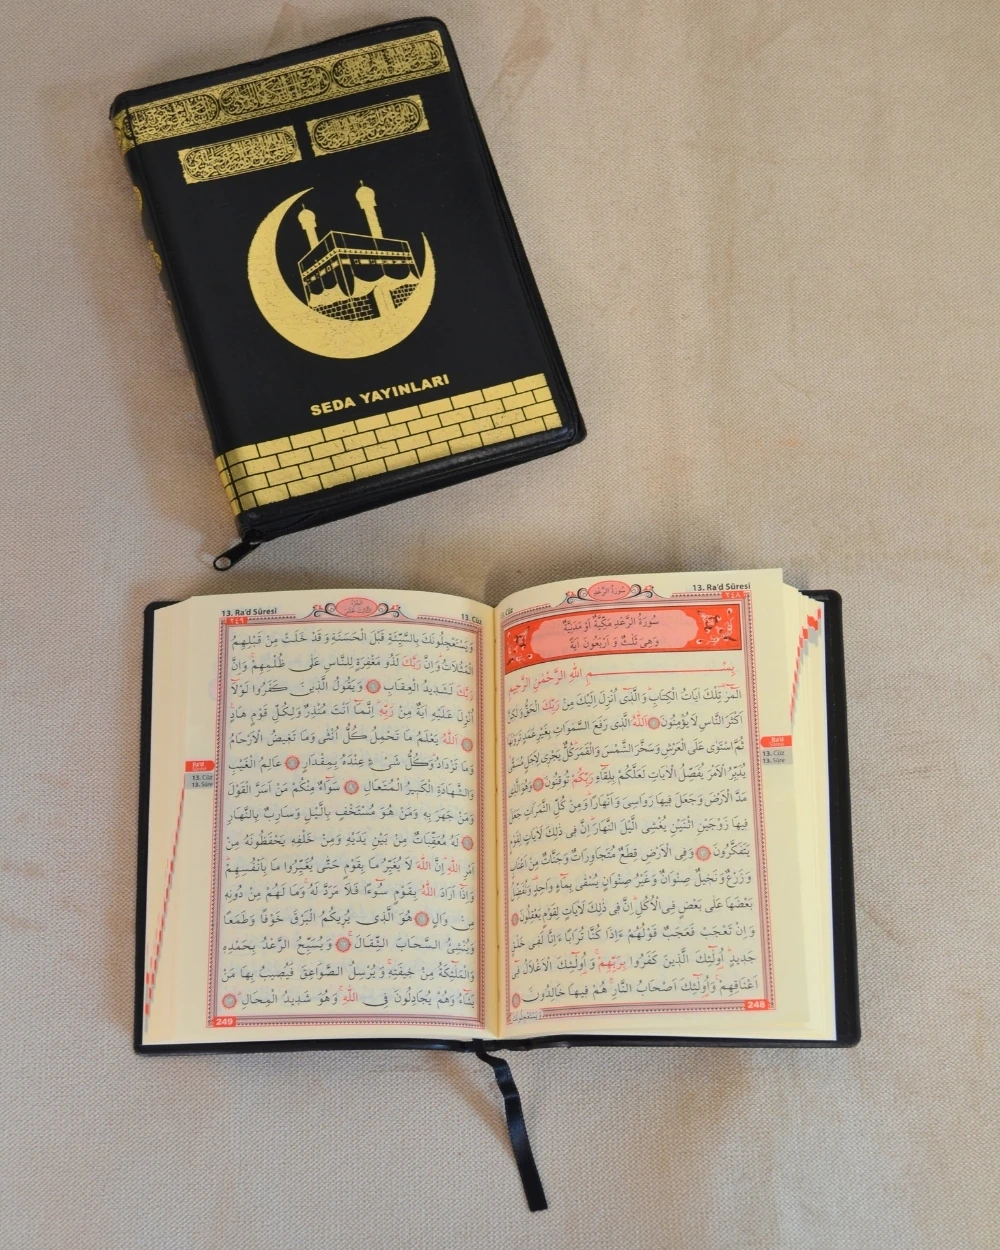 SEDA YAYINLARI
13. Ra'd Sûresi
٢٤٨
سُورَةُ الرَّعْدِ
سُورَةُ الرَّعْدِ مَكِّيَّةٌ اَوْمَدَنِيَّةٌ
وَهِىَ ثَلٰثٌ وَ اَرْبَعُونَ اٰيَةً
بِسْــــــمِ اللّٰهِ الرَّحْمٰنِ الرَّحِيمِ
الٓمٓرٰ تِلْكَ اٰيَاتُ الْكِتَابِ وَالَّذِى اُنْزِلَ اِلَيْكَ مِنْ رَبِّكَ الْحَقُّ وَلٰكِنَّ
اَكْثَرَ النَّاسِ لَا يُؤْمِنُونَ اَللّٰهُ الَّذِى رَفَعَ السَّمٰوَاتِ بِغَيْرِ عَمَدٍ تَرَوْنَهَا
ثُمَّ اسْتَوٰى عَلَى الْعَرْشِ وَسَخَّرَ الشَّمْسَ وَالْقَمَرَ كُلٌّ يَجْرِى لِاَجَلٍ مُسَمًّى
يُدَبِّرُ الْاَمْرَ يُفَصِّلُ الْاٰيَاتِ لَعَلَّكُمْ بِلِقَاءِ رَبِّكُمْ تُوقِنُونَ وَهُوَ الَّذِى
مَدَّ الْاَرْضَ وَجَعَلَ فِيهَا رَوَاسِىَ وَاَنْهَارًا وَمِنْ كُلِّ الثَّمَرَاتِ جَعَلَ
فِيهَا زَوْجَيْنِ اثْنَيْنِ يُغْشِى الَّيْلَ النَّهَارَ اِنَّ فِى ذٰلِكَ لَاٰيَاتٍ لِقَوْمٍ
يَتَفَكَّرُونَ وَفِى الْاَرْضِ قِطَعٌ مُتَجَاوِرَاتٌ وَجَنَّاتٌ مِنْ اَعْنَابٍ
وَزَرْعٌ وَنَخِيلٌ صِنْوَانٌ وَغَيْرُ صِنْوَانٍ يُسْقٰى بِمَاءٍ وَاحِدٍ وَنُفَضِّلُ
بَعْضَهَا عَلٰى بَعْضٍ فِى الْاُكُلِ اِنَّ فِى ذٰلِكَ لَاٰيَاتٍ لِقَوْمٍ يَعْقِلُونَ
وَاِنْ تَعْجَبْ فَعَجَبٌ قَوْلُهُمْ ءَاِذَا كُنَّا تُرَابًا ءَاِنَّا لَفِى خَلْقٍ
جَدِيدٍ اُولٰٓئِكَ الَّذِينَ كَفَرُوا بِرَبِّهِمْ وَ اُولٰٓئِكَ الْاَغْلَالُ فِى
اَعْنَاقِهِمْ وَاُولٰٓئِكَ اَصْحَابُ النَّارِ هُمْ فِيهَا خَالِدُونَ
وَيَسْتَعْجِلُونَكَ
248
Ra'd
13. Cüz
13. Sûre
13. Ra'd Sûresi
13. Cüz
٢٤٩
وَيَسْتَعْجِلُونَكَ بِالسَّيِّئَةِ قَبْلَ الْحَسَنَةِ وَقَدْ خَلَتْ مِنْ قَبْلِهِمُ
الْمَثُلَاتُ وَاِنَّ رَبَّكَ لَذُو مَغْفِرَةٍ لِلنَّاسِ عَلٰى ظُلْمِهِمْ وَاِنَّ
رَبَّكَ لَشَدِيدُ الْعِقَابِ وَيَقُولُ الَّذِينَ كَفَرُوا لَوْلَا
اُنْزِلَ عَلَيْهِ اٰيَةٌ مِنْ رَبِّهِ اِنَّمَا اَنْتَ مُنْذِرٌ وَلِكُلِّ قَوْمٍ هَادٍ
اَللّٰهُ يَعْلَمُ مَا تَحْمِلُ كُلُّ اُنْثٰى وَمَا تَغِيضُ الْاَرْحَامُ
وَمَا تَزْدَادُ وَكُلُّ شَىْءٍ عِنْدَهُ بِمِقْدَارٍ عَالِمُ الْغَيْبِ
وَالشَّهَادَةِ الْكَبِيرُ الْمُتَعَالِ سَوَاءٌ مِنْكُمْ مَنْ اَسَرَّ الْقَوْلَ
وَمَنْ جَهَرَ بِهِ وَمَنْ هُوَ مُسْتَخْفٍ بِالَّيْلِ وَسَارِبٌ بِالنَّهَارِ
لَهُ مُعَقِّبَاتٌ مِنْ بَيْنِ يَدَيْهِ وَمِنْ خَلْفِهِ يَحْفَظُونَهُ مِنْ
اَمْرِ اللّٰهِ اِنَّ اللّٰهَ لَا يُغَيِّرُ مَا بِقَوْمٍ حَتّٰى يُغَيِّرُوا مَا بِاَنْفُسِهِمْ
وَاِذَا اَرَادَ اللّٰهُ بِقَوْمٍ سُوءًا فَلَا مَرَدَّ لَهُ وَمَا لَهُمْ مِنْ دُونِهِ
مِنْ وَالٍ هُوَ الَّذِى يُرِيكُمُ الْبَرْقَ خَوْفًا وَطَمَعًا
وَيُنْشِئُ السَّحَابَ الثِّقَالَ وَيُسَبِّحُ الرَّعْدُ بِحَمْدِهِ
وَالْمَلٰٓئِكَةُ مِنْ خِيفَتِهِ وَيُرْسِلُ الصَّوَاعِقَ فَيُصِيبُ بِهَا مَنْ
يَشَاءُ وَهُمْ يُجَادِلُونَ فِى اللّٰهِ وَهُوَ شَدِيدُ الْمِحَالِ
249
Ra'd
13. Cüz
13. Sûre